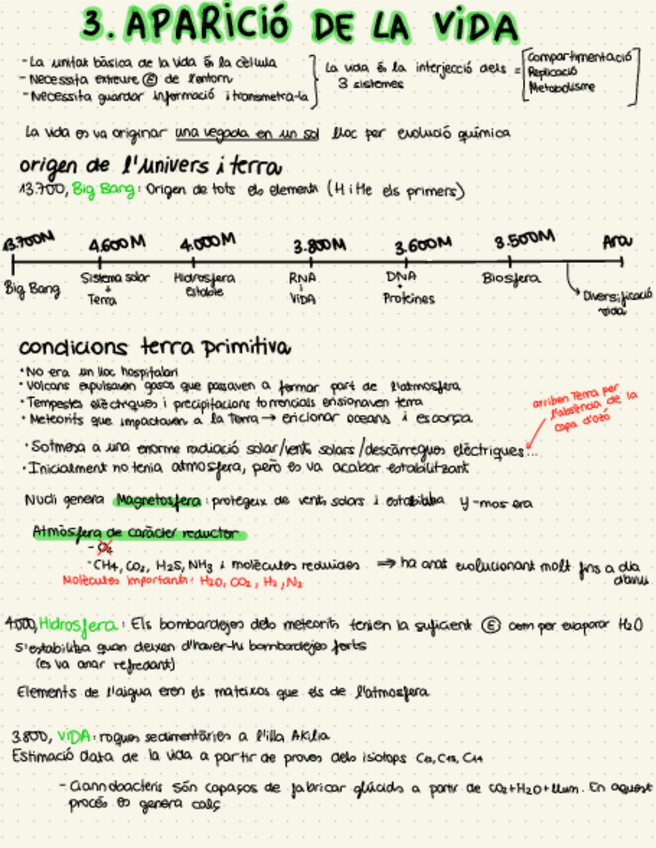 3. APARICIÓ DE LA VIDA
- La unitat bàsica de la vida és la cèl·lula
- Necessita extreure Ⓔ de l'entorn
- Necessita guardar informació i transmetre-la
La vida és la interjecció dels =
3 sistemes
Compartimentació
Replicació
Metabolisme
La vida es va originar una vegada en un sol lloc per evolució química
origen de l'univers i terra
13.700, Big Bang: Origen de tots els elements (H i He els primers)
13.700M 4.600M 4.000M 3.800M 3.600M 3.500M Ara
Big Bang
Sistema solar
+
Terra
Hidrosfera
estable
RNA
↓
VIDA
DNA
+
Proteïnes
Biosfera
Diversificació
vida
condicions terra primitiva
• No era un lloc hospitalari
• Volcans expulsaven gasos que passaven a formar part de l'atmosfera
• Tempestes elèctriques i precipitacions torrencials erosionaven terra
• Meteorits que impactaven a la Terra → oceans i escorça
arriben Terra per
l'absència de la
capa d'ozó
• Sotmesa a una enorme radiació solar/vents solars/descàrregues elèctriques...
• Inicialment no tenia atmosfera, però es va acabar estabilitzant
Nucli genera Magnetosfera: protegeix de vents solars i estabilitza
Atmòsfera de caràcter reductor
- O₂
- CH4, CO2, H2S, NH3 i molècules reduïdes ⇒ ha anat evolucionant molt fins a dia
d'avui
Molècules importants: H2O, CO2, H2, N2
4.000, Hidrosfera: Els bombardejos dels meteorits tenien la suficient Ⓔ com per evaporar H2O
S'estabilitza quan deixen d'haver-hi bombardejos forts
(es va anar refredant)
Elements de l'aigua eren els mateixos que els de l'atmosfera
3.800, VIDA: roques sedimentàries a l'illa Akilia
Estimació data de la vida a partir de proves dels isòtops C12, C13, C14
- Cianobacteris són capaços de fabricar glúcids a partir de CO2+H2O+llum. En aquest
procés es genera calç